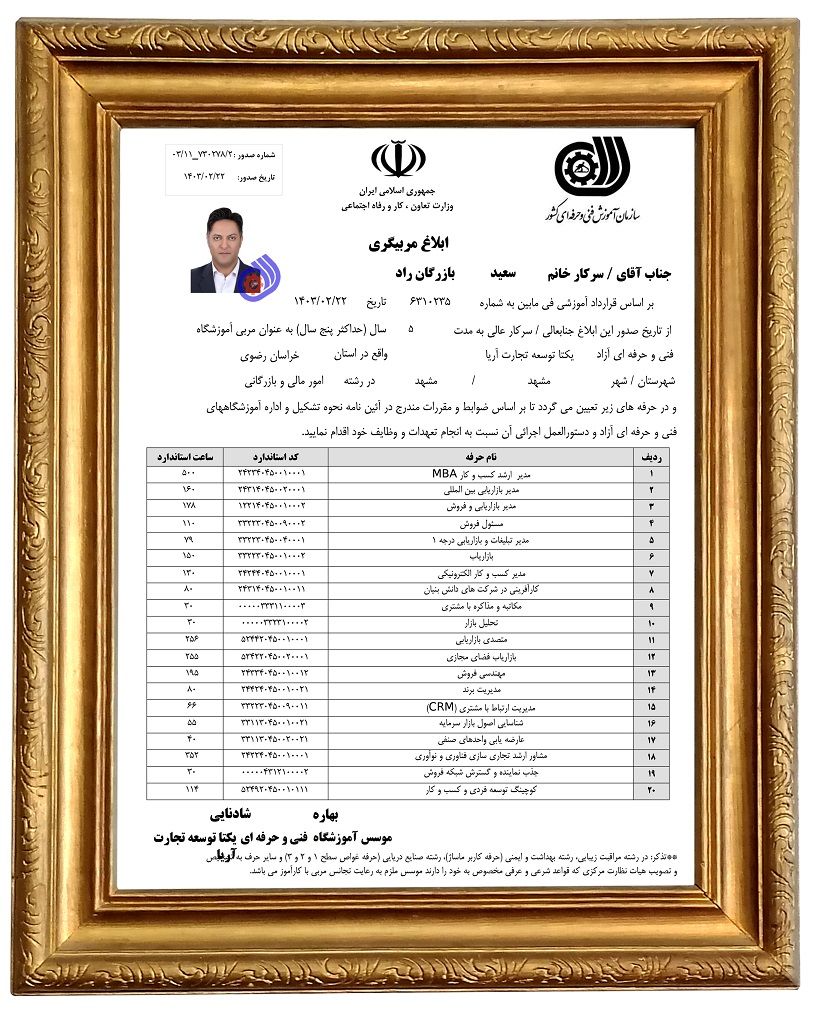 شماره صدور : ۷۳۰۲۷۸/۲_۰۳/۱۱
تاریخ صدور: ۱۴۰۳/۰۲/۲۲
جمهوری اسلامی ایران
وزارت تعاون ، کار و رفاه اجتماعی
سازمان آموزش فنی و حرفه ای کشور
ابلاغ مربیگری
جناب آقای / سرکار خانم سعید بازرگان راد
بر اساس قرارداد آموزشی فی مابین به شماره ۶۳۱۰۲۳۵ تاریخ ۱۴۰۳/۰۲/۲۲
از تاریخ صدور این ابلاغ جنابعالی / سرکار عالی به مدت ۵ سال (حداکثر پنج سال) به عنوان مربی آموزشگاه
فنی و حرفه ای آزاد یکتا توسعه تجارت آریا واقع در استان خراسان رضوی
شهرستان / شهر مشهد / مشهد در رشته امور مالی و بازرگانی
و در حرفه های زیر تعیین می گردد تا بر اساس ضوابط و مقررات مندرج در آئین نامه نحوه تشکیل و اداره آموزشگاههای
فنی و حرفه ای آزاد و دستورالعمل اجرائی آن نسبت به انجام تعهدات و وظایف خود اقدام نمایید.
ردیف نام حرفه کد استاندارد ساعت استاندارد
۱ مدیر ارشد کسب و کار MBA ۲۴۲۳۴۰۴۵۰۰۱۰۰۰۱ ۵۰۰
۲ مدیر بازاریابی بین المللی ۲۴۳۱۴۰۴۵۰۰۲۰۰۰۱ ۱۶۰
۳ مدیر بازاریابی و فروش ۱۲۲۱۴۰۴۵۰۰۱۰۰۰۲ ۱۷۸
۴ مسئول فروش ۳۳۲۲۳۰۴۵۰۰۹۰۰۰۲ ۱۱۰
۵ مدیر تبلیغات و بازاریابی درجه ۱ ۳۳۲۲۳۰۴۵۰۰۴۰۰۰۱ ۷۹
۶ بازاریاب ۳۳۲۲۳۰۴۵۰۰۱۰۰۰۲ ۱۵۰
۷ مدیر کسب و کار الکترونیکی ۲۴۲۴۴۰۴۵۰۰۱۰۰۰۱ ۱۳۰
۸ کارآفرینی در شرکت های دانش بنیان ۲۴۳۱۴۰۴۵۰۰۱۰۰۱۱ ۸۰
۹ مکاتبه و مذاکره با مشتری ۰۰۰۰۰۳۳۳۱۱۰۰۰۰۳ ۳۰
۱۰ تحلیل بازار ۰۰۰۰۰۳۳۳۳۱۰۰۰۰۲ ۳۰
۱۱ متصدی بازاریابی ۵۲۴۴۲۰۴۵۰۰۱۰۰۰۱ ۲۵۶
۱۲ بازاریاب فضای مجازی ۵۲۴۲۲۰۴۵۰۰۲۰۰۰۱ ۲۵۵
۱۳ مهندسی فروش ۲۴۳۳۴۰۴۵۰۰۱۰۰۱۲ ۱۹۵
۱۴ مدیریت برند ۲۴۴۲۴۰۴۵۰۰۱۰۰۲۱ ۸۰
۱۵ مدیریت ارتباط با مشتری (CRM) ۳۳۲۲۳۰۴۵۰۰۹۰۰۱۱ ۶۶
۱۶ شناسایی اصول بازار سرمایه ۳۳۱۱۳۰۴۵۰۰۱۰۰۲۱ ۵۵
۱۷ عارضه یابی واحدهای صنفی ۳۳۱۱۳۰۴۵۰۰۲۰۰۲۱ ۴۰
۱۸ مشاور ارشد تجاری سازی فناوری و نوآوری ۲۴۲۲۴۰۴۵۰۰۱۰۰۰۱ ۳۵۲
۱۹ جذب نماینده و گسترش شبکه فروش ۰۰۰۰۰۴۳۱۲۱۰۰۰۰۲ ۳۰
۲۰ کوچینگ توسعه فردی و کسب و کار ۵۲۴۹۲۰۴۵۰۰۱۰۱۱۱ ۱۱۴
بهاره شادنایی
موسس آموزشگاه فنی و حرفه ای یکتا توسعه تجارت
آریا
**تذکر: در رشته مراقبت زیبایی، رشته بهداشت و ایمنی (حرفه کاربر ماساژ)، رشته صنایع دریایی (حرفه غواص سطح ۱ و ۲ و ۳) و سایر حرف به
و تصویب هیات نظارت مرکزی که قواعد شرعی و عرفی مخصوص به خود را دارند موسس ملزم به رعایت تجانس مربی با کارآموز می باشد.